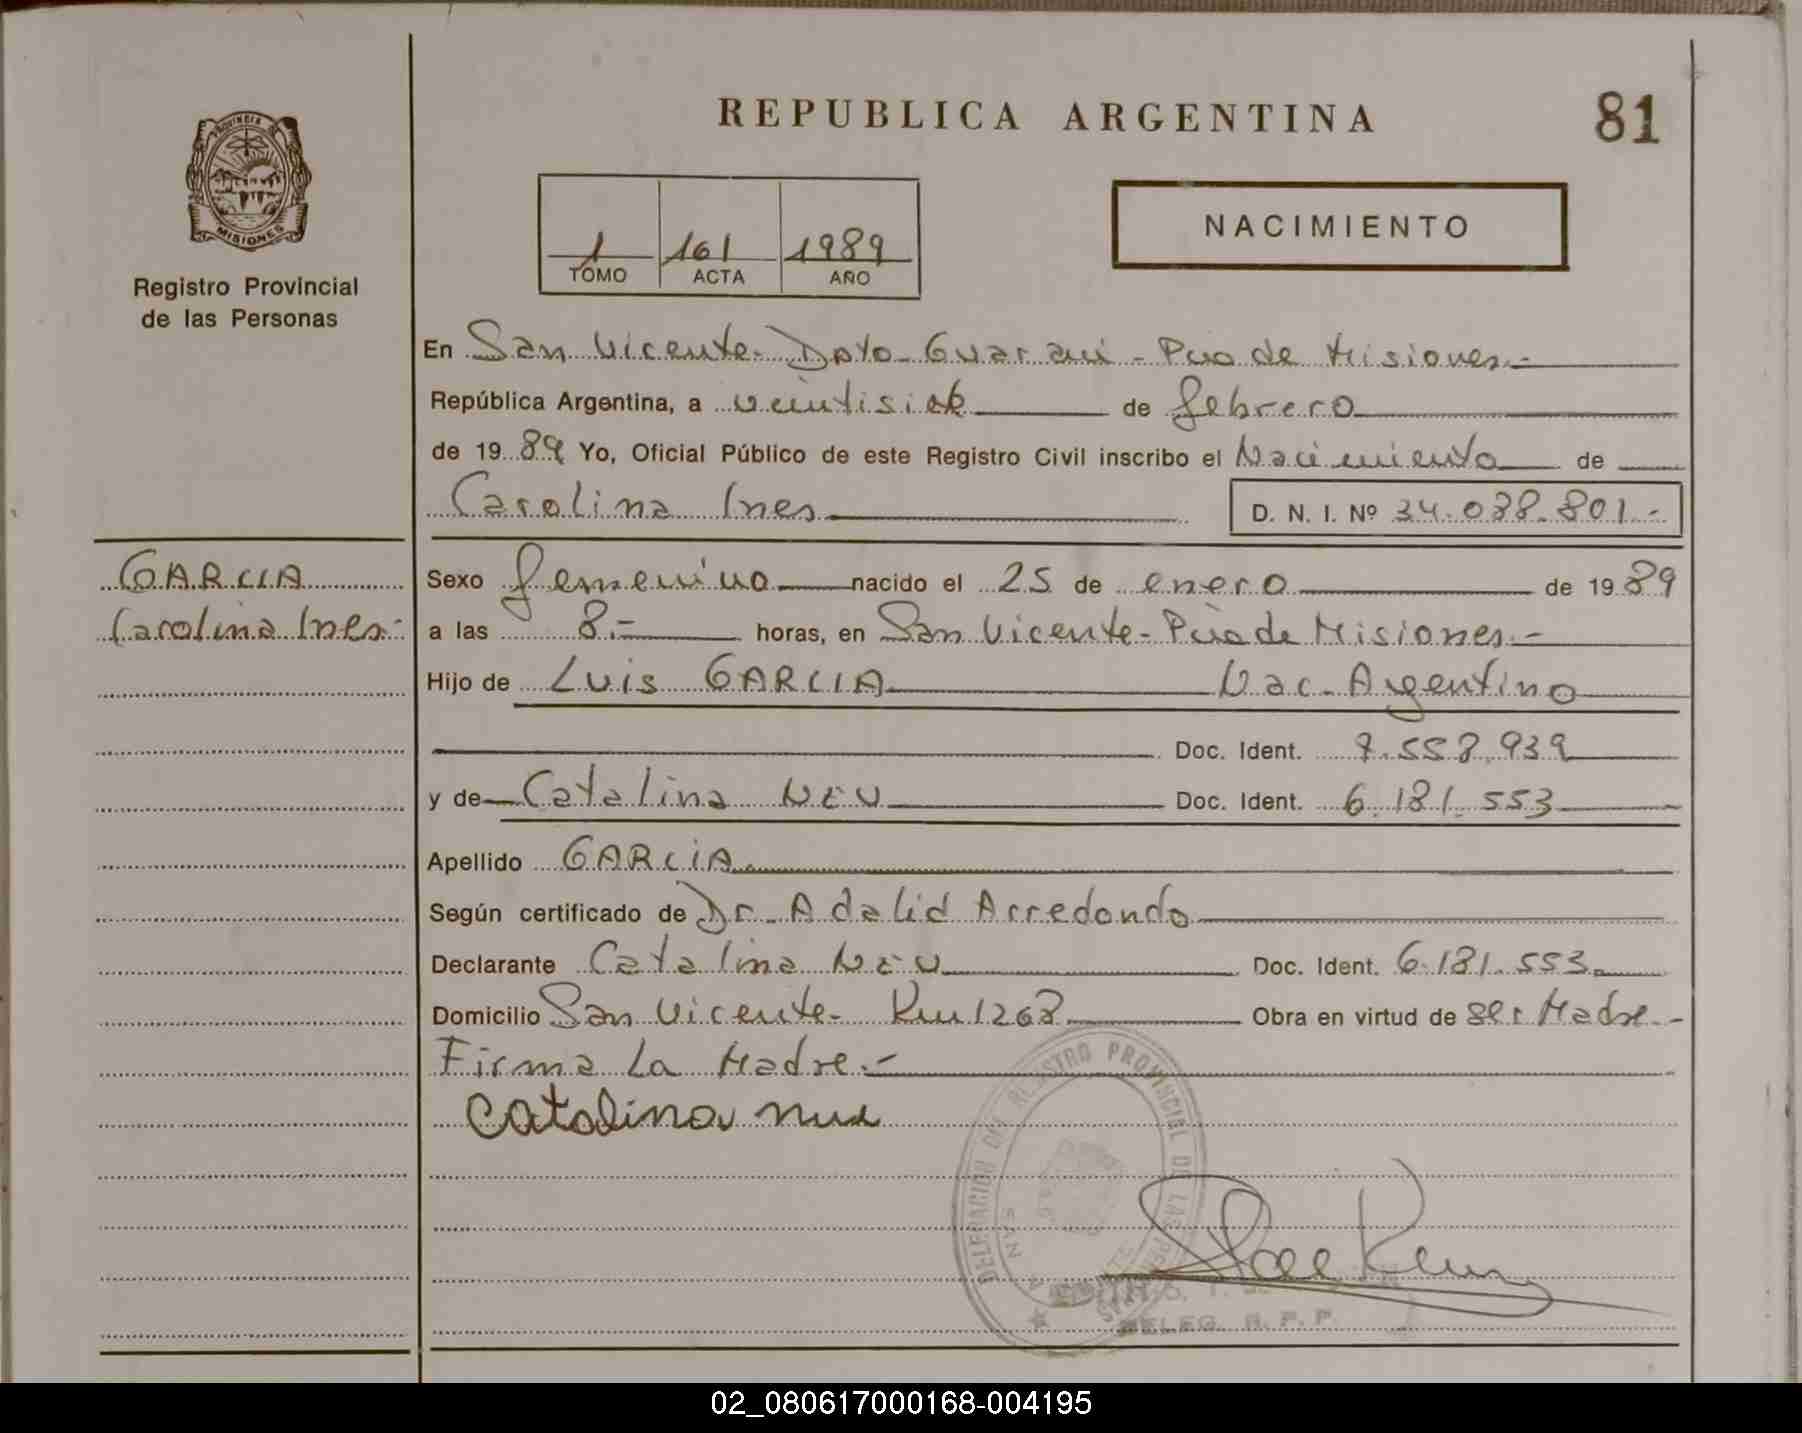 REPUBLICA ARGENTINA
81
PROVINCIA DE
MISIONES
Registro Provincial
de las Personas
1 161 1989
TOMO ACTA AÑO
NACIMIENTO
En San Vicente - Dpto Guarani - Pcia de Misiones.-
República Argentina, a veintisiete de febrero
de 1989 Yo, Oficial Público de este Registro Civil inscribo el Nacimiento de
Carolina Ines D. N. I. Nº 34.038.801.-
GARCIA
Carolina Ines.-
Sexo femenino nacido el 25 de enero de 1989
a las 8.- horas, en San Vicente - Pcia de Misiones.-
Hijo de Luis GARCIA Nac. Argentino
Doc. Ident. 7.558.939
y de Catalina NEU Doc. Ident. 6.181.553
Apellido GARCIA
Según certificado de Dr. Adalid Arredondo
Declarante Catalina NEU Doc. Ident. 6.181.553
Domicilio San Vicente - Km 1268 Obra en virtud de ser Madre.-
Firma La Madre.-
Catalina
DELEGACION DEL REGISTRO PROVINCIAL DE LAS
SAN
DELEG. R. P. P.
02_080617000168-004195